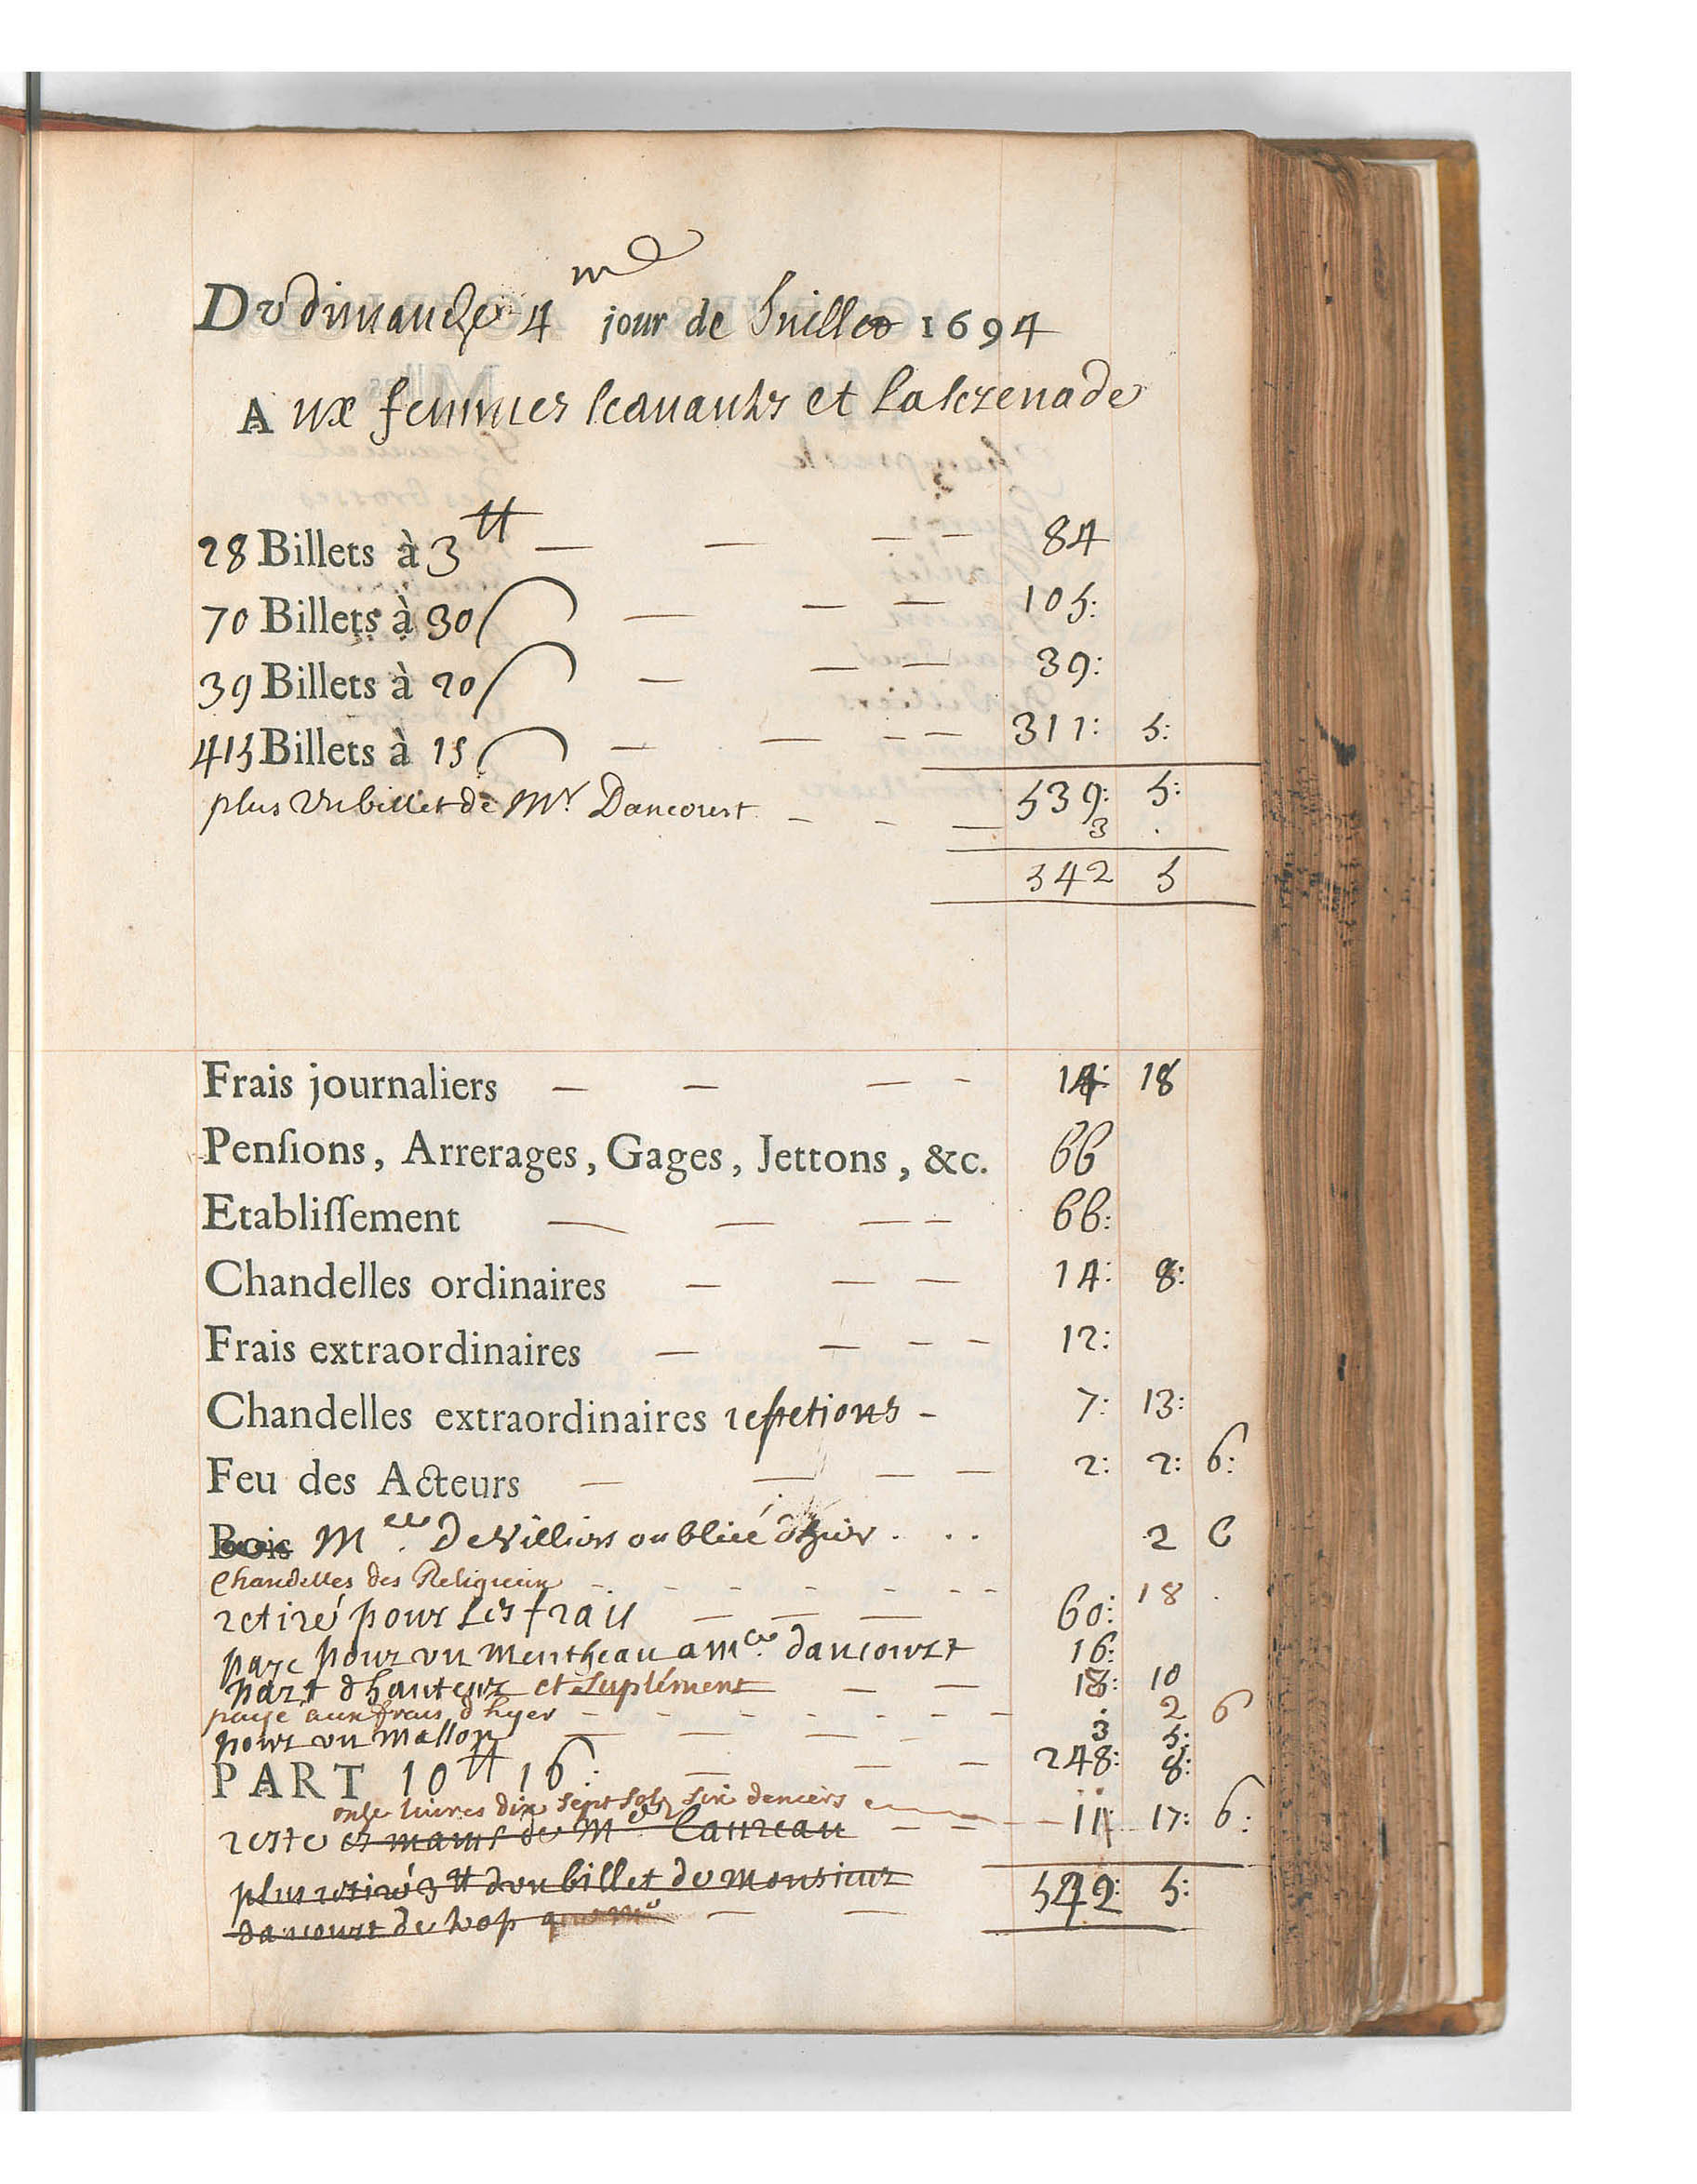 Du dimanche 4 me jour de Juillet 1694
Aux femmes scavantes et la serenade
28 Billets à 3 ₶ — — — — 84
70 Billets à 30 s — — — 105:
39 Billets à 20 s — — — 39:
415 Billets à 15 s — — — — 311: 5:
539: 5:
plus un billet de Mr. Dancourt - - — 3 .
542 5
Frais journaliers — — — - 14: 18
Penſions, Arrerages, Gages, Jettons, &c. 66
Etabliſſement — — — - 66:
Chandelles ordinaires — — — 14: 8:
Frais extraordinaires — — - - 12:
Chandelles extraordinaires repetions - 7: 13:
Feu des Acteurs — — — — 2: 2: 6:
Bois Melle. de Villiers oubliée d'hier . . . 2 6
Chandelles des Religieux - - - - - - - 18 .
retiré pour les frais — — — 60:
paye pour un mentheau a melle. dancourt 16:
part d hauteur et Suplément — — 18: 10
paye aux frais d'hyer - - - - - - - 2 6
pour un Mallon — — — — 3 5:
PART 10 ₶ 16: — — — 248: 8:
onze livres dix sept sols six deniers
reste es mains de Mr Laureau — — 11 17: 6:
plus retiré 3 ₶ d'un billet de monsieur 542: 5:
dancourt de trop — —